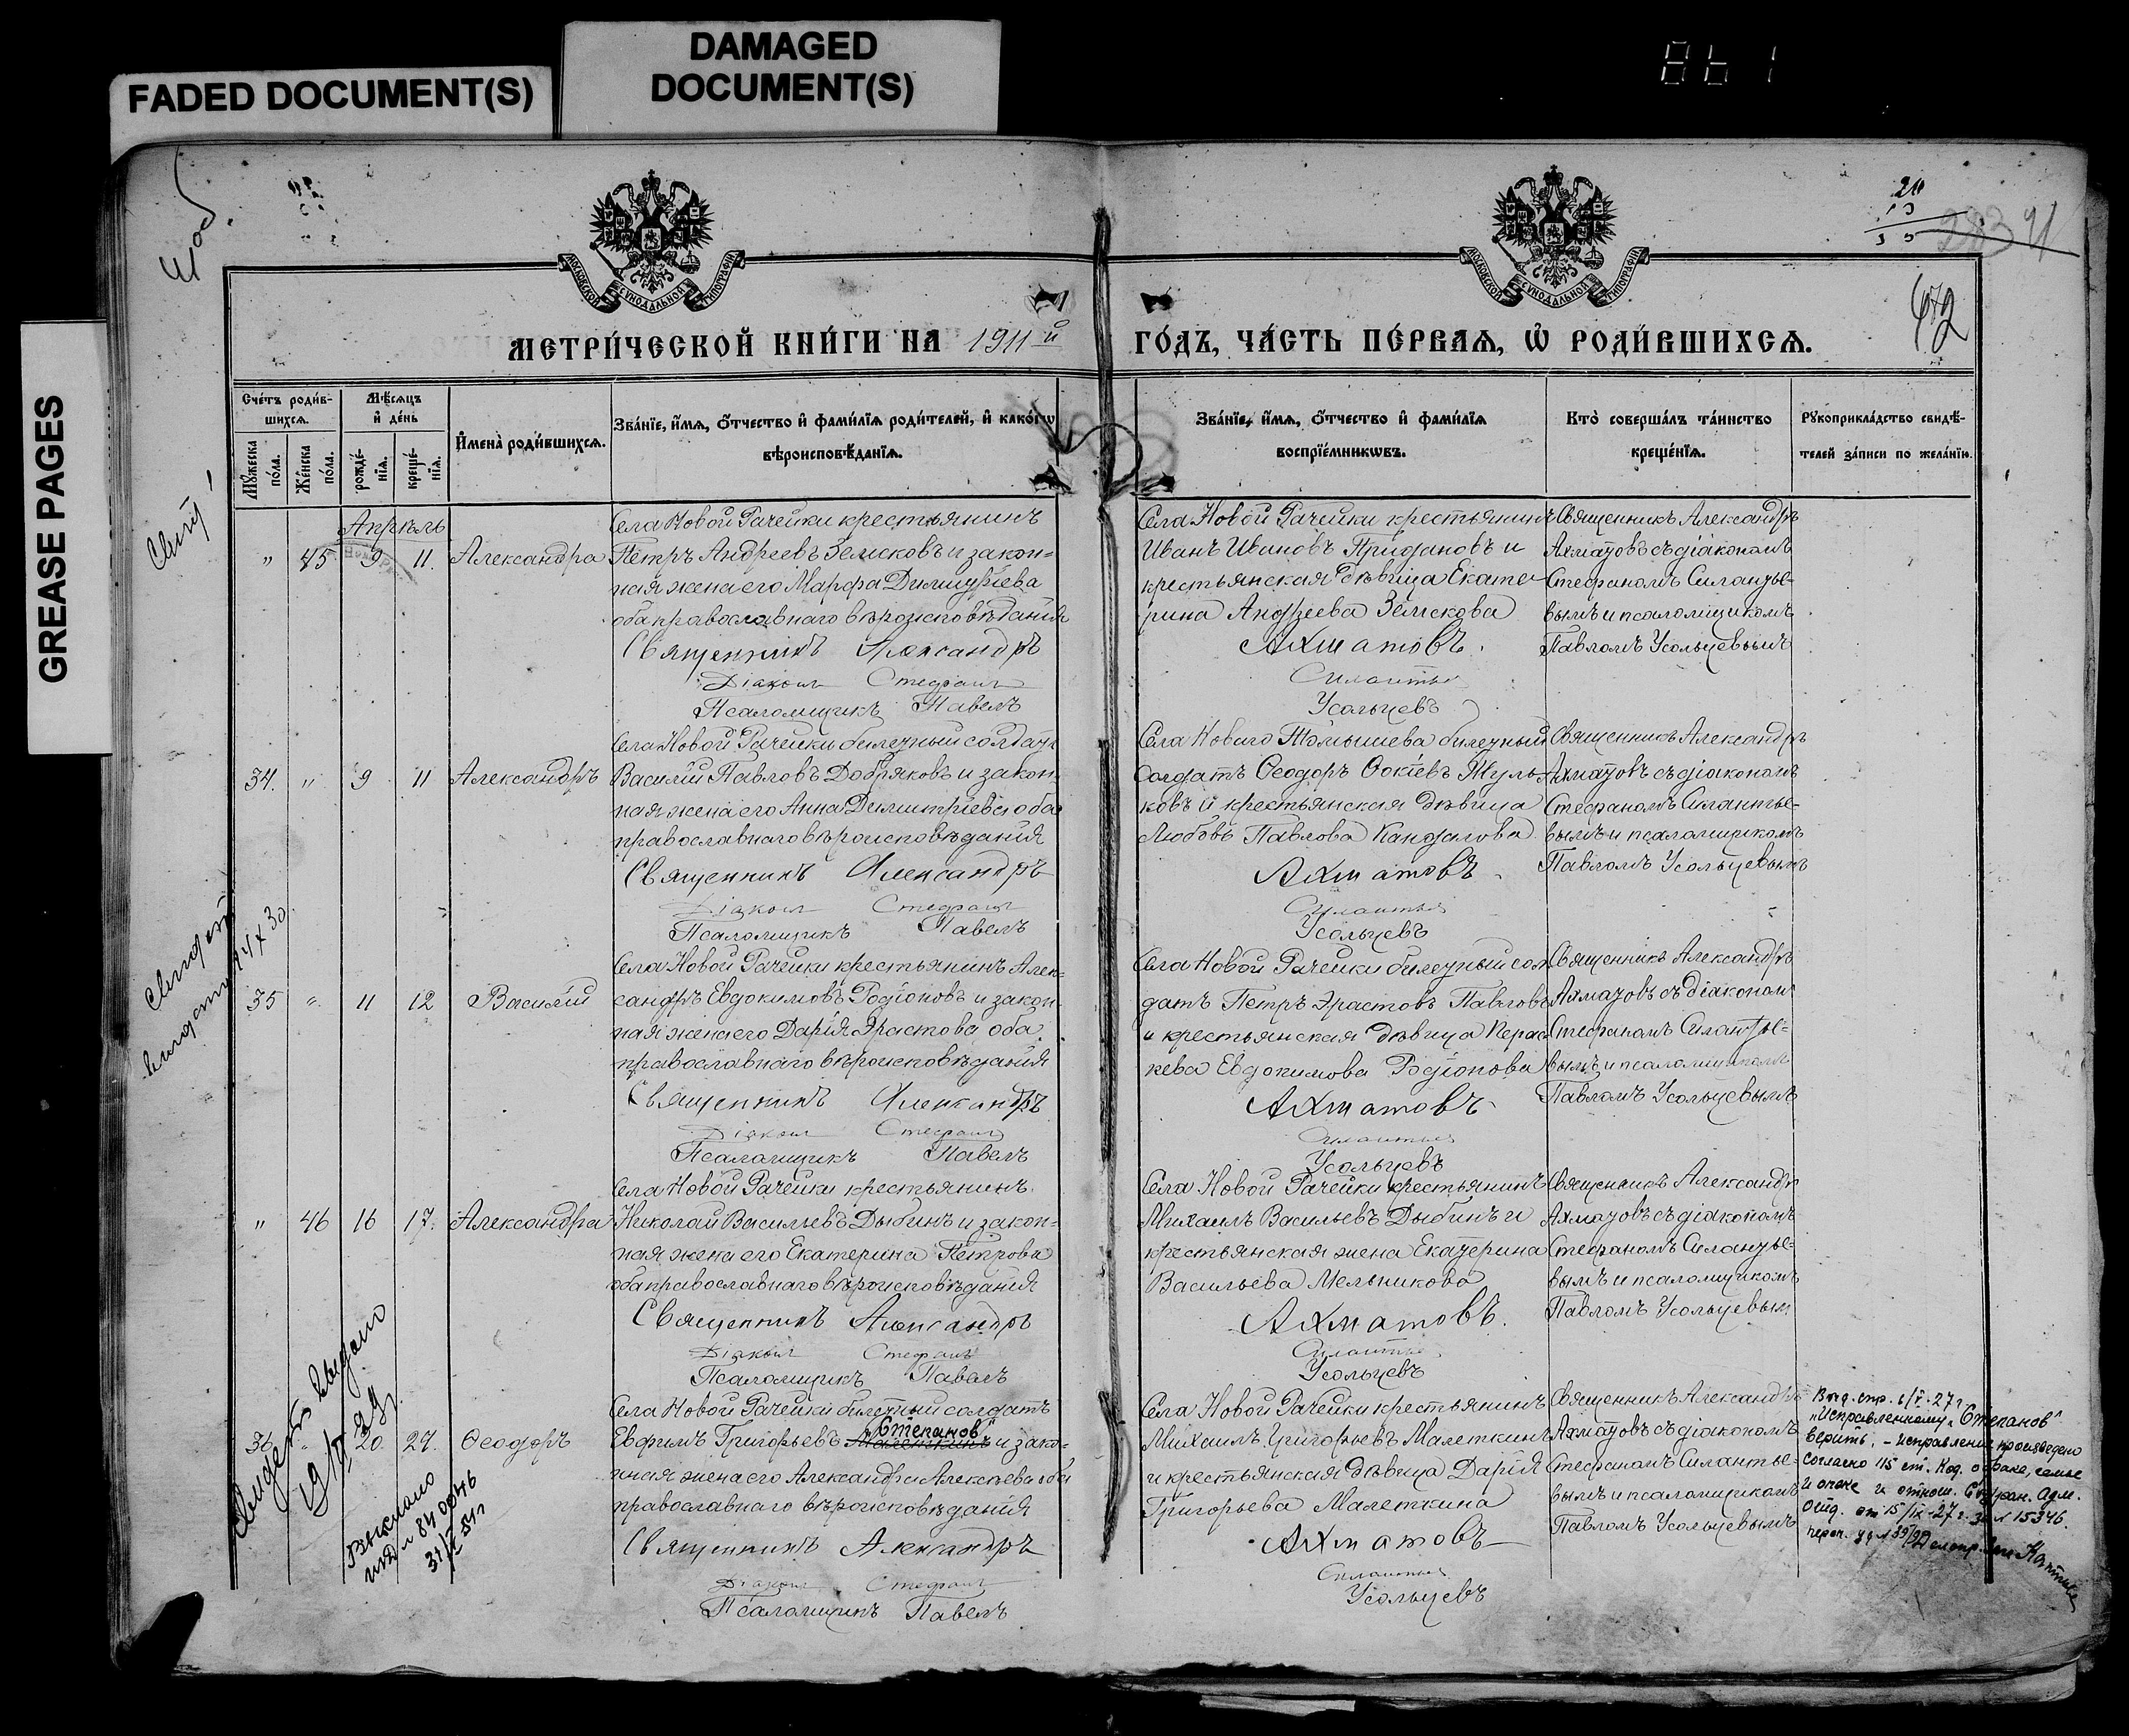 FADED DOCUMENT(S)
DAMAGED
DOCUMENT(S)
GREASE PAGES
861
МОСКОВСКОЙ СѴНОДАЛЬНОЙ ТИПОГРАФІИ
МОСКОВСКОЙ СѴНОДАЛЬНОЙ ТИПОГРАФІИ
МЕТРИ́ЧЕСКОЙ КНИ́ГИ НА 1911 й
ГО́ДЪ, ЧА́СТЬ ПЕ́РВАЯ, Ѡ҆ РОДИ́ВШИХСЯ.
Сче́тъ роди́в-
шихся.
Мѣ́сяцъ
и҆ де́нь
Мꙋ́жеска
по́ла.
Же́нска
по́ла.
рожде́-
нїя.
креще́-
нїя.
И҆мена̀ роди́вшихся.
Зва́нїе, и҆́мя, ѻ҆́тчество и҆ фами́лїя роди́телей, и҆ како́гѡ
вѣроисповѣ́данїя.
Зва́нїе, и҆́мя, ѻ҆́тчество и҆ фами́лїя
воспрїе́мникѡвъ.
Кто̀ соверша́лъ та́инство
креще́нїя.
Рꙋкоприкла́дство свидѣ́-
телей за́писи по жела́нїю.
Апрѣль
" 45 9 11. Александра
Села Новой Рачейки крестьянинъ
Петръ Андреевъ Земсковъ и закон-
ная жена его Марфа Димитріева
оба православнаго вѣроисповѣданія
Священникъ Александръ
Діаконъ Стефанъ
Псаломщикъ Павелъ
Села Новой Рачейки крестьянинъ
Иванъ Ивановъ Придановъ и
крестьянская дѣвица Екате-
рина Андреева Земскова
Ахматовъ
Силантьевъ
Усольцевъ
Священникъ Александръ
Ахматовъ съ діакономъ
Стефаномъ Силантье-
вымъ и псаломщикомъ
Павломъ Усольцевымъ
34. " 9 11 Александръ
Села Новой Рачейки билетный солдатъ
Василій Павловъ Добряковъ и закон-
ная жена его Анна Димитріева оба
православнаго вѣроисповѣданія
Священникъ Александръ
Діаконъ Стефанъ
Псаломщикъ Павелъ
Села Новаго Томышева билетный
солдатъ Ѳеодоръ Ѳокіевъ Жуль-
ковъ и крестьянская дѣвица
Любовь Павлова Кандалова
Ахматовъ
Силантьевъ
Усольцевъ
Священникъ Александръ
Ахматовъ съ діакономъ
Стефаномъ Силантье-
вымъ и псаломщикомъ
Павломъ Усольцевымъ
35 " 11 12 Василій
Села Новой Рачейки крестьянинъ Алек-
сандръ Евдокимовъ Родіоновъ и закон-
ная жена его Дарія Эрастова оба
православнаго вѣроисповѣданія
Священникъ Александръ
Діаконъ Стефанъ
Псаломщикъ Павелъ
Села Новой Рачейки билетный сол-
датъ Петръ Эрастовъ Павловъ
и крестьянская дѣвица Парас-
кева Евдокимова Родіонова
Ахматовъ
Силантьевъ
Усольцевъ
Священникъ Александръ
Ахматовъ съ діакономъ
Стефаномъ Силантье-
вымъ и псаломщикомъ
Павломъ Усольцевымъ
" 46 16 17. Александра
Села Новой Рачейки крестьянинъ
Николай Васильевъ Дыбинъ и закон-
ная жена его Екатерина Петрова
оба православнаго вѣроисповѣданія
Священникъ Александръ
Діаконъ Стефанъ
Псаломщикъ Павелъ
Села Новой Рачейки крестьянинъ
Михаилъ Васильевъ Дыбинъ и
крестьянская жена Екатерина
Васильева Мельникова
Ахматовъ.
Силантьевъ
Усольцевъ
Священникъ Александръ
Ахматовъ съ діакономъ
Стефаномъ Силантье-
вымъ и псаломщикомъ
Павломъ Усольцевым
36 " 20. 24. Ѳеодоръ
Села Новой Рачейки билетный солдатъ
"Степанов"
Евфимъ Григорьевъ Малеткинъ и зако-
нная жена его Александра Алексѣева оба
православнаго вѣроисповѣданія
Священникъ Александръ
Діаконъ Стефанъ
Псаломщикъ Павелъ
Села Новой Рачейки крестьянинъ
Михаилъ Григорьевъ Малеткинъ
и крестьянская дѣвица Дарія
Григорьева Малеткина
Ахматовъ
Силантьевъ
Усольцевъ
Священникъ Александръ
Ахматовъ съ діакономъ
Стефаномъ Силантье-
вымъ и псаломщикомъ
Павломъ Усольцевымъ
"Исправленному "Степанов"
верить. – Исправление произведено
согласно 115 ст. Код. о браке, семье
и опеке и отнош. Сызран. Адм.
Отд. от 15/IX-27 г. за № 15346.